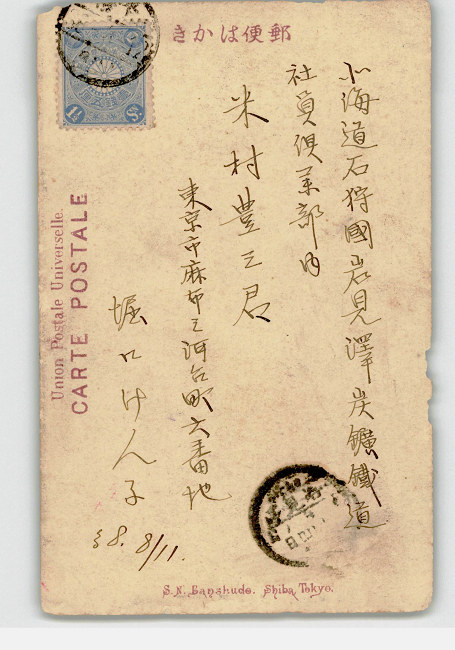 郵便はかき
北海道石狩國岩見澤炭鑛鐵道
社員俱楽部内
米村豊三君
東京市麻布三河台町六番地
堀口けん子
38. 8/11.
Union Postale Universelle.
CARTE POSTALE
1½ Sn
S.N. Banshudo. Shiba Tokyo.